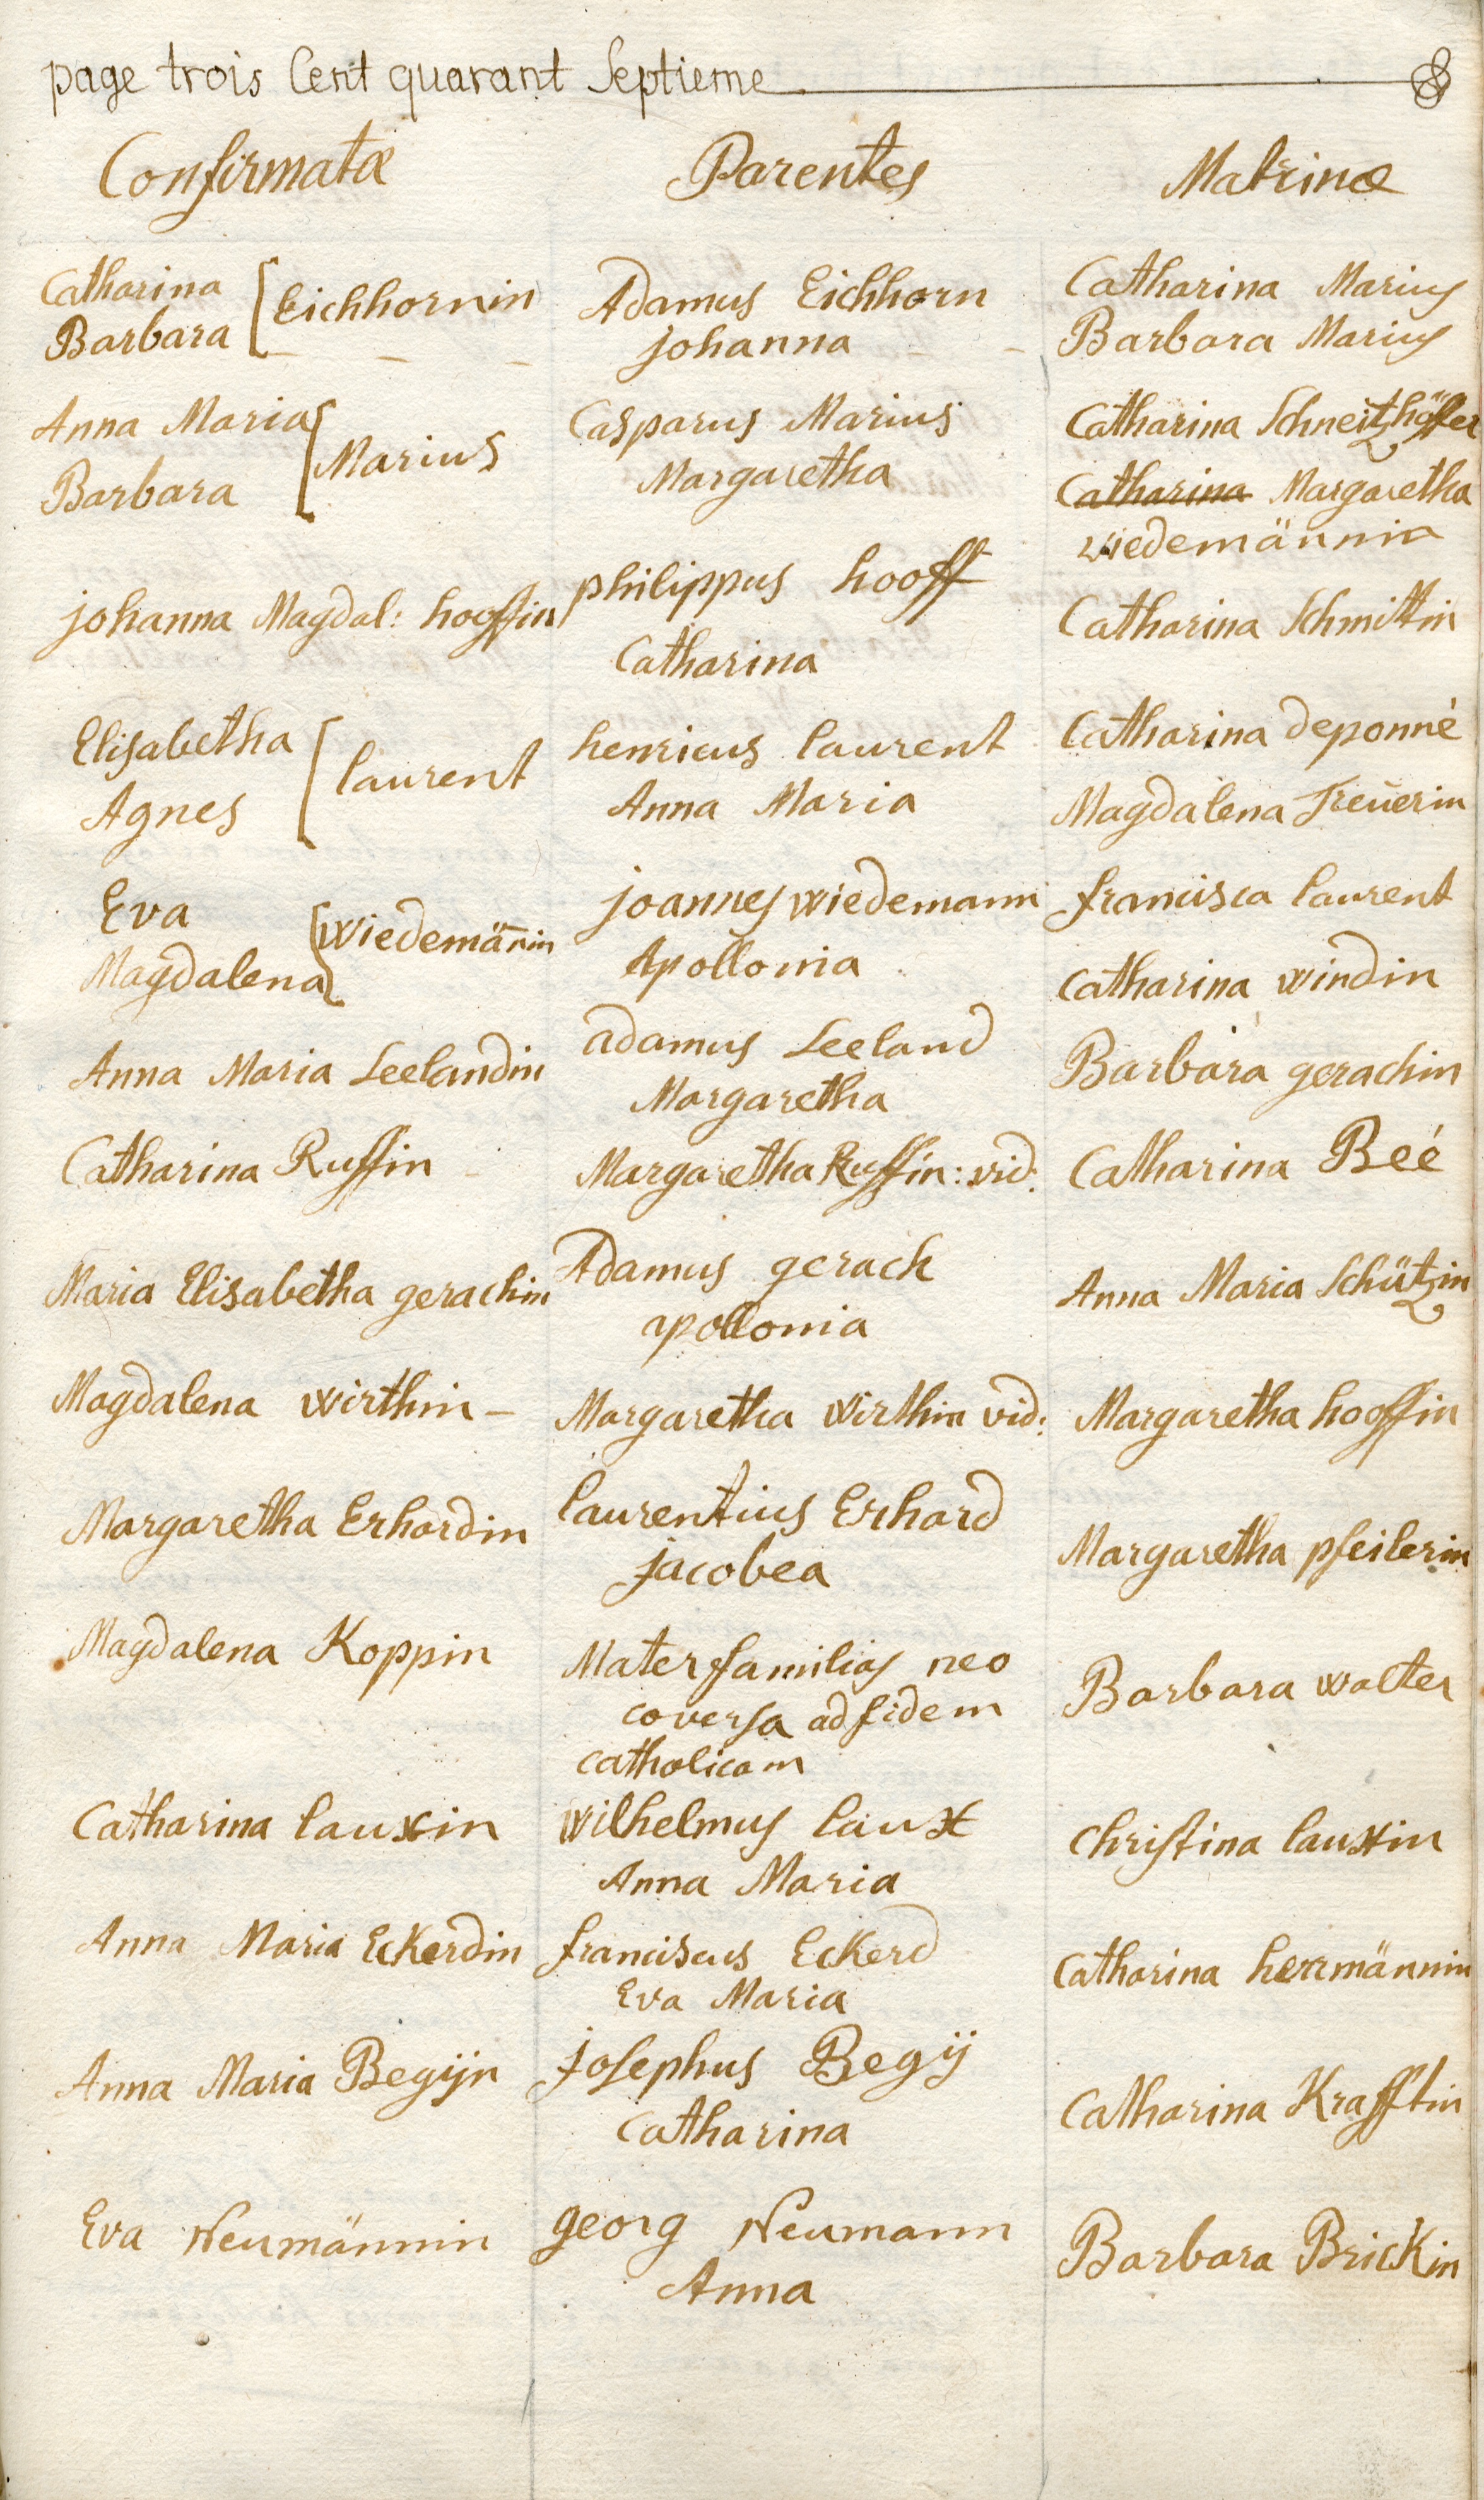 page trois Cent quarant Septieme
Confirmatæ Parentes Matrinæ
Catharina Eichhornin Adamus Eichhorn Catharina Marius
Barbara johanna Barbara Marius
Anna Maria Marius Casparus Marius Catharina Schneitzhöffer
Barbara Margaretha Catharina Margaretha
wiedemännin
johanna Magdal: hooffin philippus hooff Catharina Schmittin
Catharina
Elisabetha laurent henricus laurent Catharina deponné
Agnes Anna Maria Magdalena Treüerin
Eva wiedemän̄in joannes wiedemann francisca laurent
Magdalena Apollonia Catharina windin
Anna Maria Leelandin adamus Leeland Barbara gerachin
Margaretha
Catharina Ruffin Margaretha Ruffin: vid: Catharina Beé
Maria Elisabetha gerachin Adamus gerach Anna Maria Schützin
apollonia
Magdalena wirthin - Margaretha wirthin vid: Margaretha hooffin
Margaretha Erhardin laurentius Erhard Margaretha pfeilerin
jacobea
Magdalena Koppin Materfamilias neo Barbara walter
coversa ad fidem
catholicam
Catharina lauxin wilhelmus laux Christina lauxin
Anna Maria
Anna Maria Eckerdin franciscus Eckerd Catharina herrmännin
Eva Maria
Anna Maria Begijn josephus Begij Catharina Krafftin
Catharina
Eva Neumännin georg Neumann Barbara Brickin
Anna